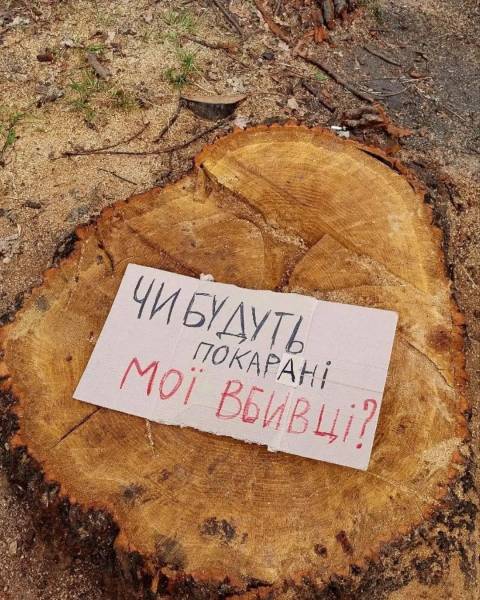 ЧИ БУДУТЬ
ПОКАРАНІ
МОЇ ВБИВЦІ?